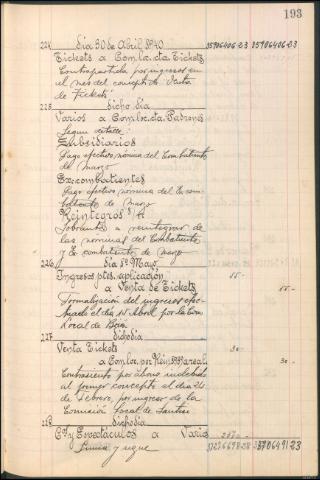 193
224 día 30 de Abril 1940 35706406-23 35706406-23
Tickets a Com. loc. cta. Tickets
Contrapartida por ingresos en
el mes del concepto de Venta
de Tickets
225 dicho dia
Varios a Com. loc. cta. Padrones
Segun detalle:
Subsidiarios
Pago efectivo nómina del Combatiente
de marzo
Ex-combatientes
Pago efectivo nómina del Ex com-
batiente de marzo
Reintegros
Sobrantes a reintegrar de
las nóminas del Combatiente
y Ex combatiente de marzo
226 día 1º Mayo
Ingresos ptes. aplicación 55--
a Venta de Tickets 55--
Formalización del ingreso efec-
tuado el día 1º Abril por la Com.
Local de
227 dicho dia
Venta Tickets 30-
a Com. loc. por 30-
Contrasiento por abono indebido
al primer concepto el día 24
de Febrero, por ingreso de la
Comisión Local de
228 dicho dia
y Espectáculos a Varios
Suma y sigue